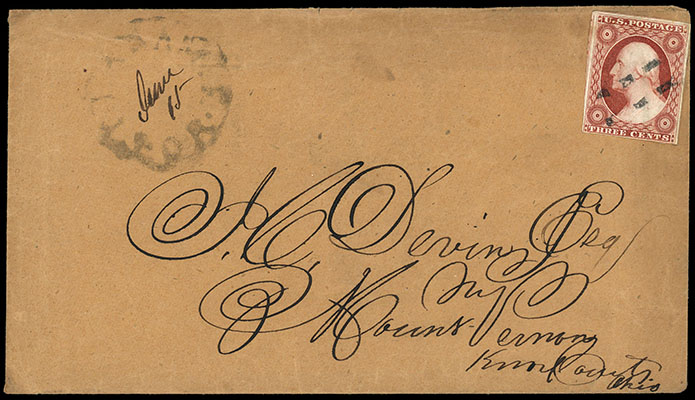 U.S. POSTAGE
THREE CENTS
June
15
J. C. Devin, Esq
Mount Vernon
Knox County
Ohio